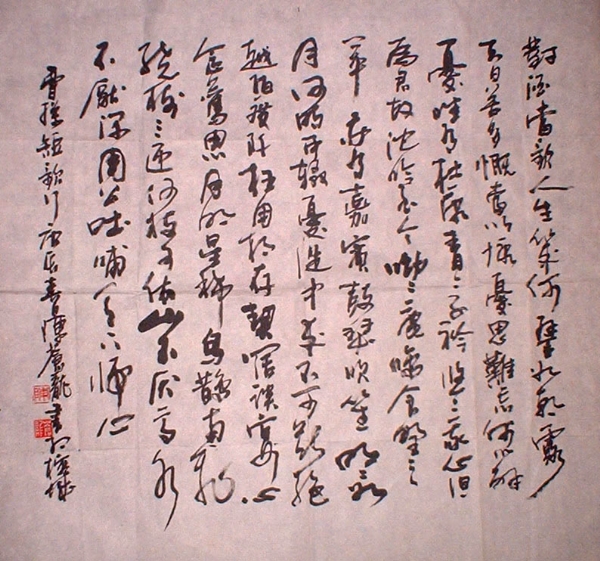 對酒當歌人生幾何譬如朝露
去日苦多慨當以慷憂思難忘何以解
憂唯有杜康青々子衿悠々我心但
為君故沈吟至今呦々鹿鳴食野之
苹我有嘉賓鼓瑟吹笙明々如
月何時可輟憂從中來不可斷絕
越陌度阡枉用相存契闊談宴心
念舊恩月明星稀烏鵲南飛
繞樹三匝何枝可依山不厭高水
不厭深周公吐哺天下歸心
曹操短歌行庚辰春龍書於榕城